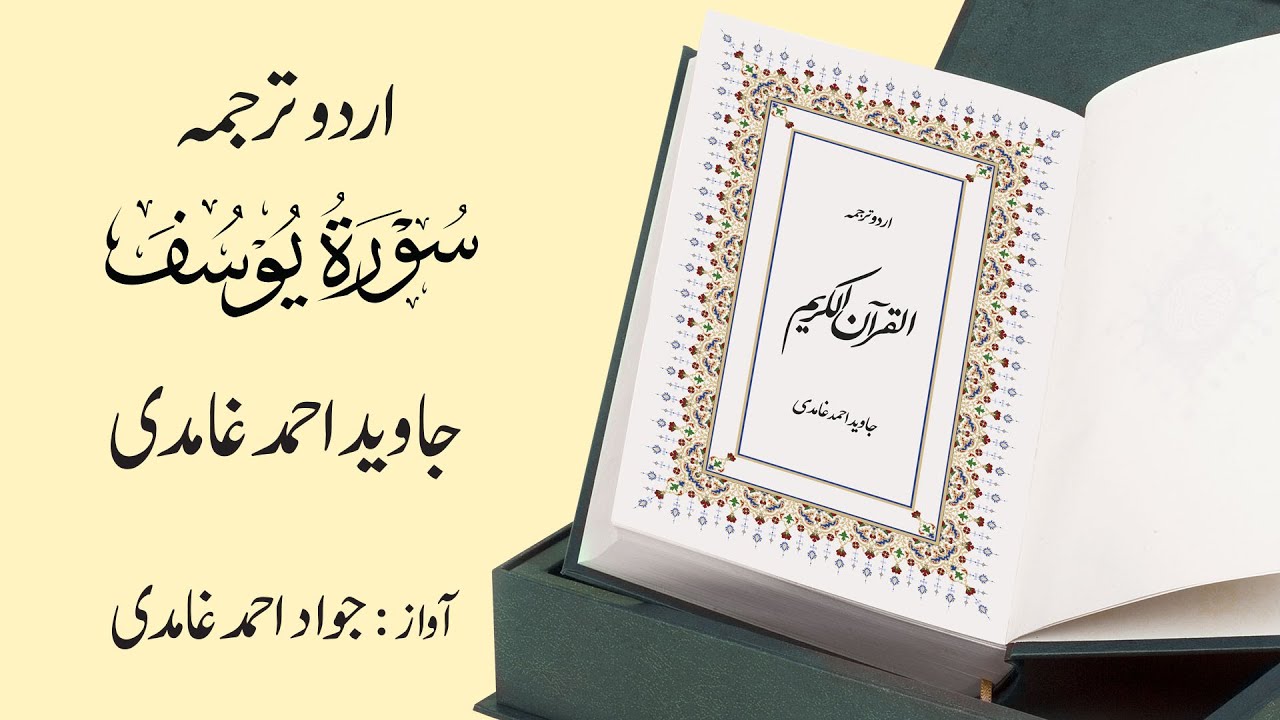 اردو ترجمہ
سُوْرَةُ يُوْسُفَ
جاوید احمد غامدی
آواز : جواد احمد غامدی
اردو ترجمہ
القرآن الکریم
جاوید احمد غامدی